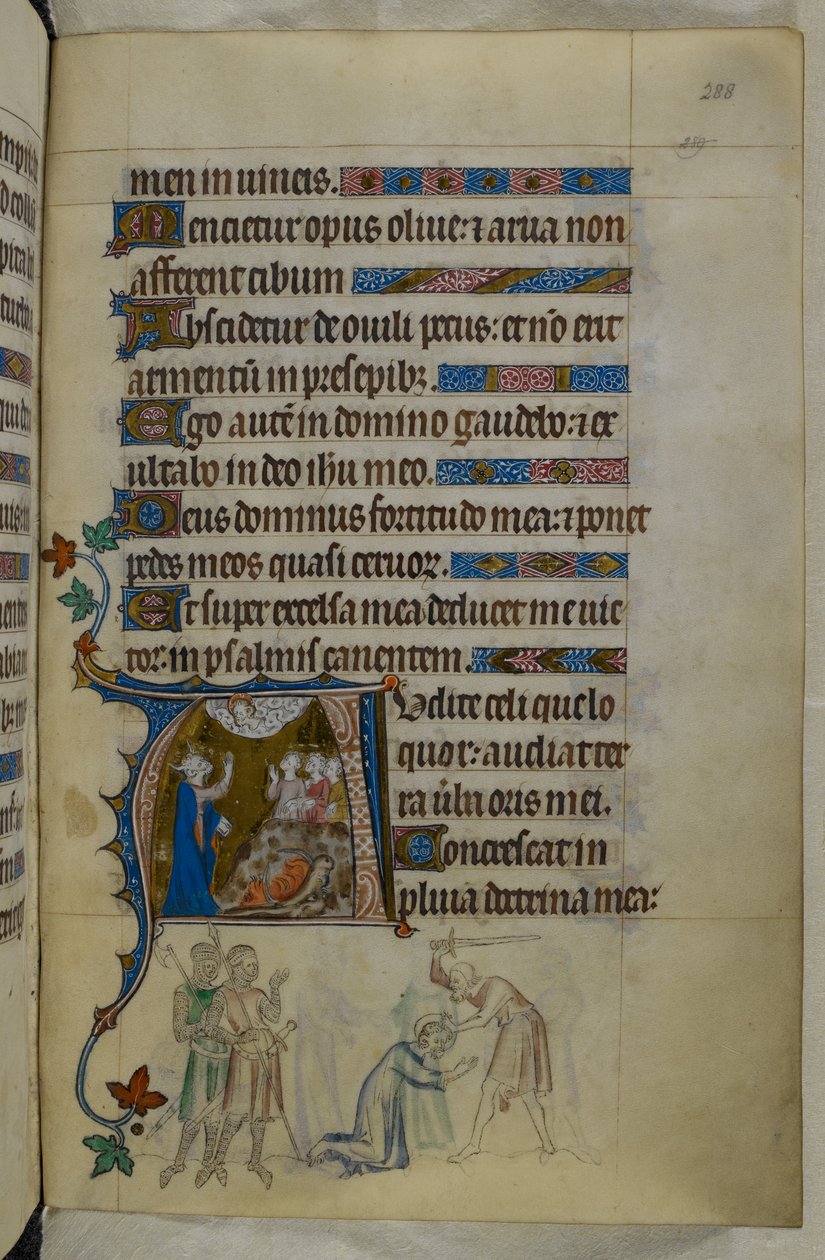 288
289
men in uineis.
Mencietur opus oliue: ⁊ arua non
afferent cibum
Abscidetur de ouili pecus: et nõ erit
armentũ in presepibꝫ.
Ego autẽ in domino gaudebo: ⁊ ex
ultabo in deo ihũ meo.
Deus dominus fortitudo mea: ⁊ ponet
pedes meos quasi ceruoꝝ.
Et super excelsa mea deducet me uic
tor: in psalmis canentem.
Audite celi que lo
quor: audiat ter
ra ũba oris mei.
Concrescat in
pluuia doctrina mea: